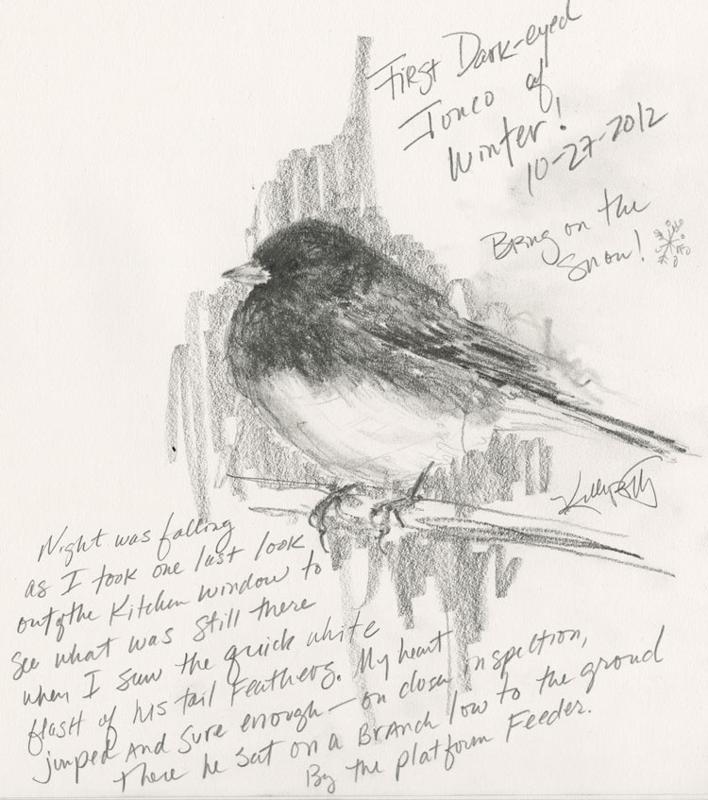 First Dark-eyed
Junco of
Winter!
10-27-2012
Bring on the
Snow!
Night was falling
as I took one last look
out of the Kitchen window to
see what was still there
when I saw the quick white
flash of his tail Feathers. My heart
jumped And sure enough — on closer inspection,
there he sat on a BrAnch low to the ground
By the platform Feeder.